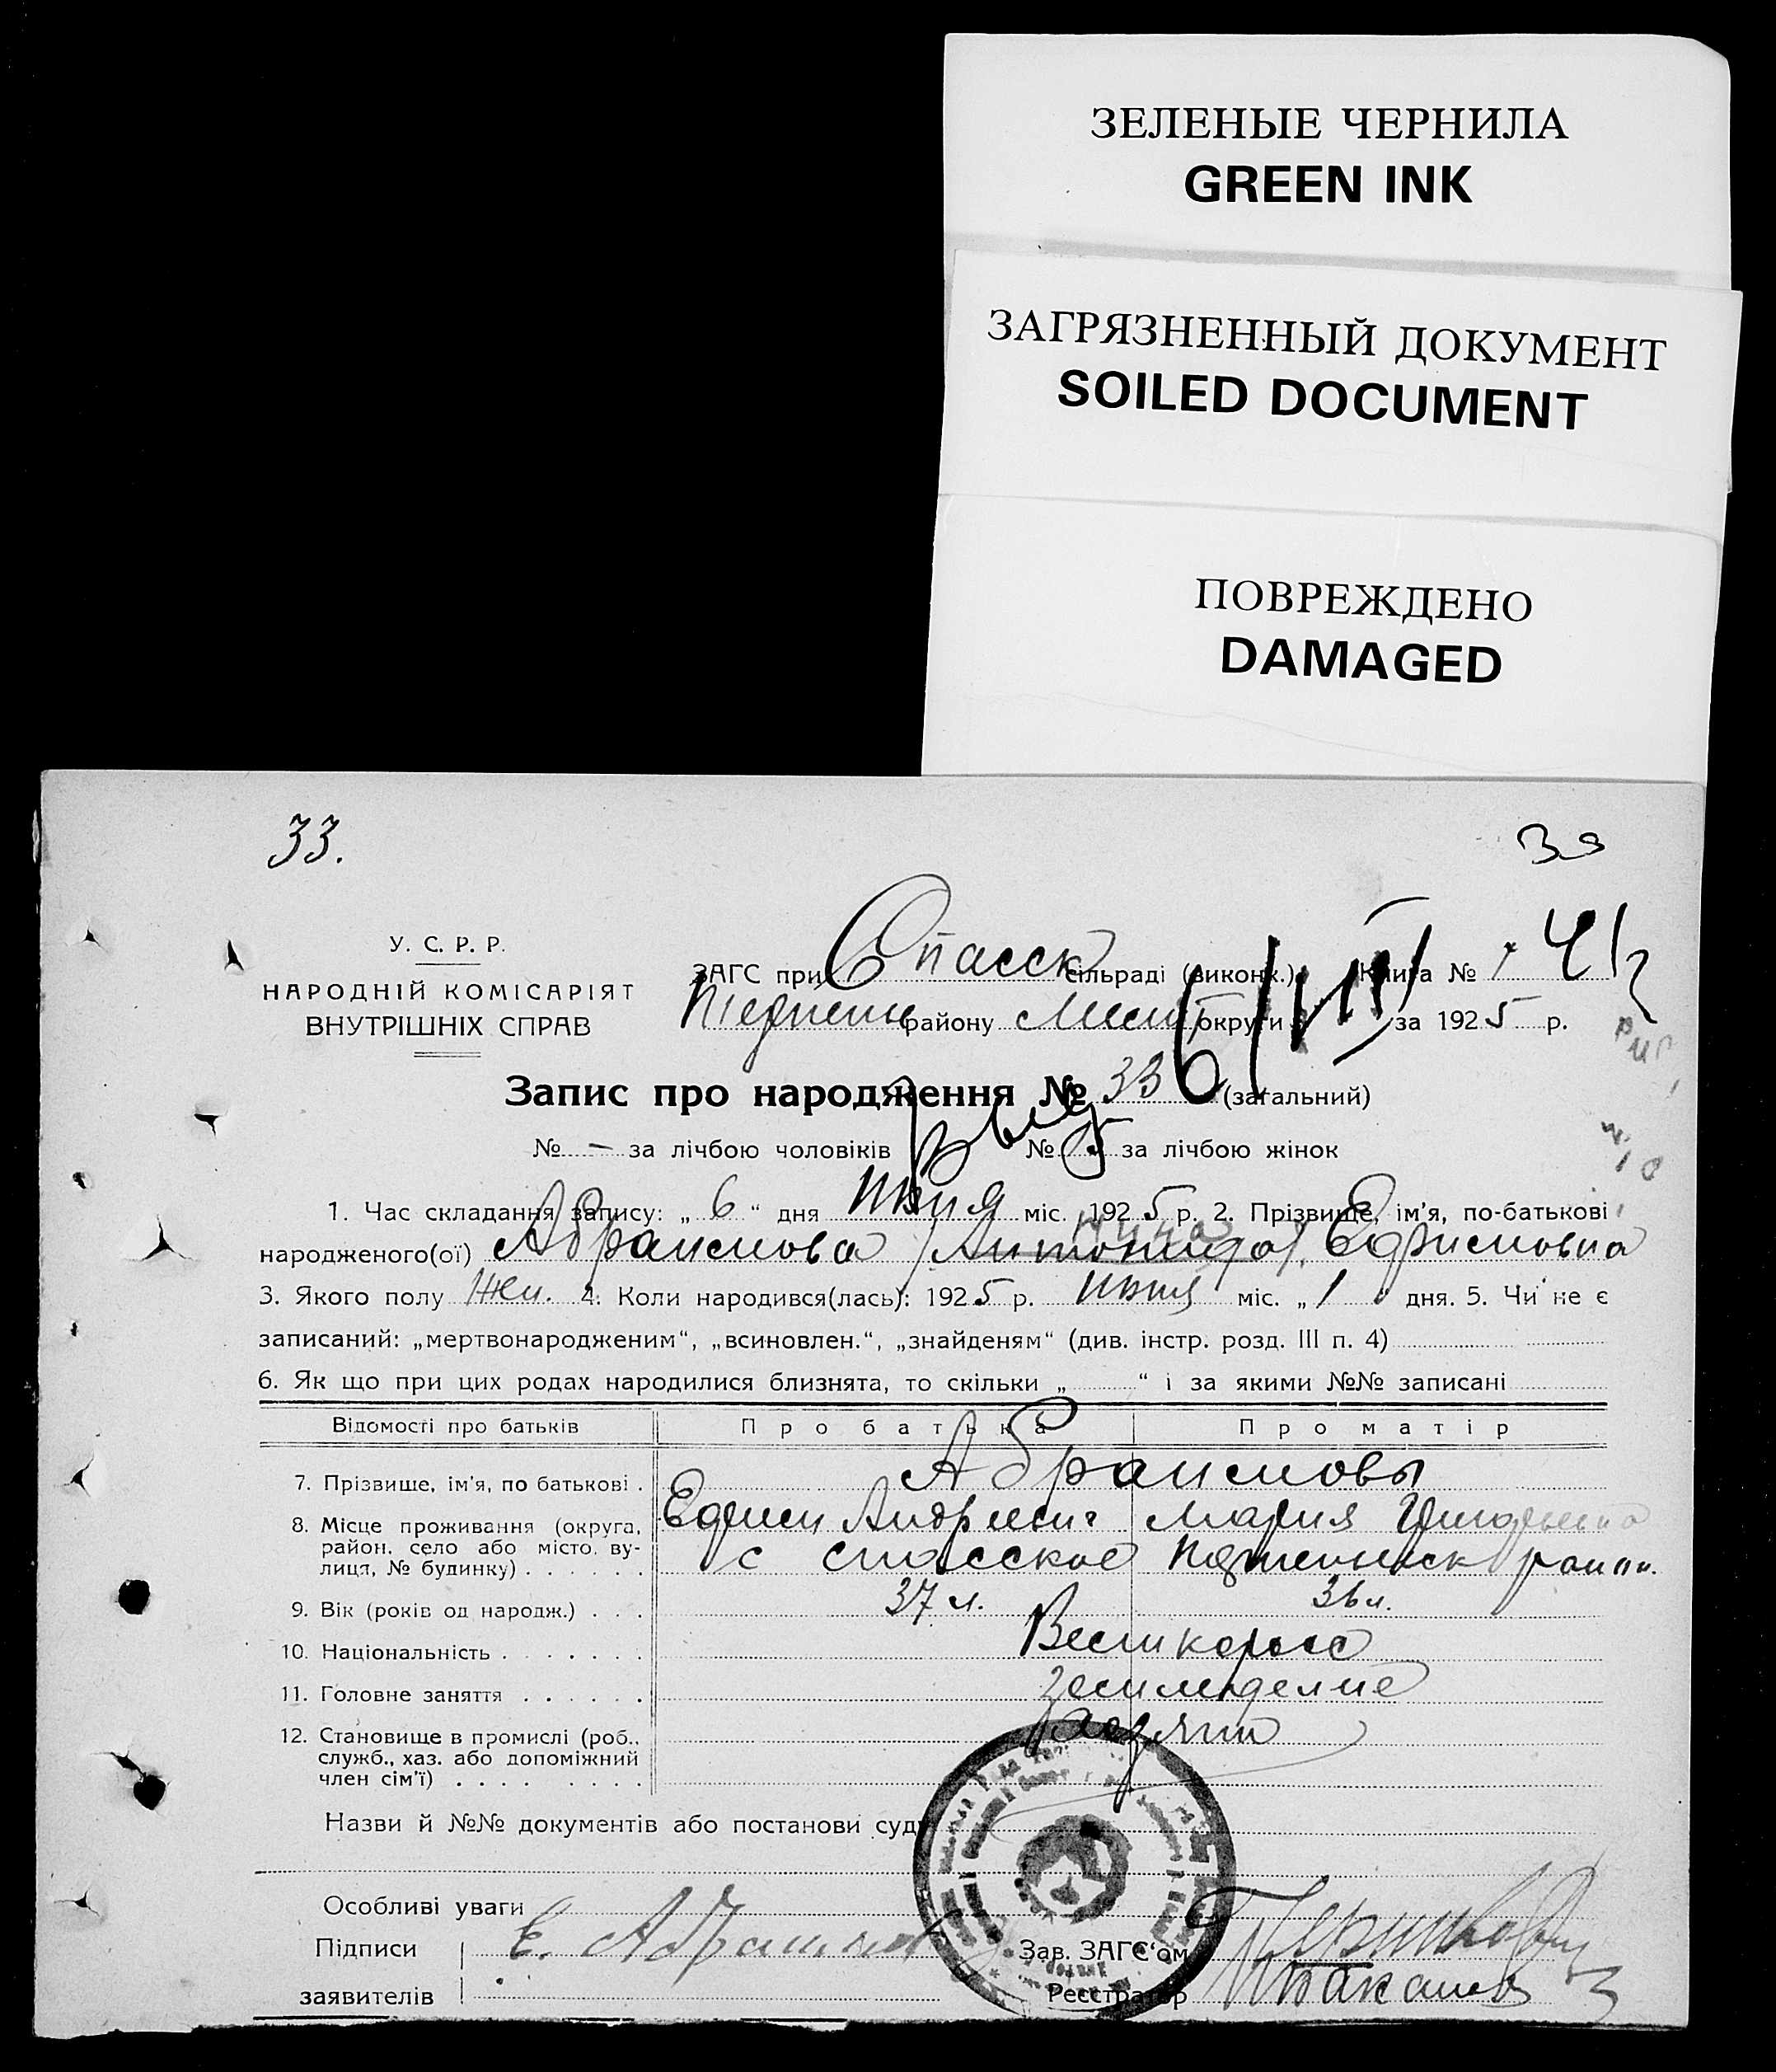 ЗЕЛЕНЫЕ ЧЕРНИЛА
GREEN INK
ЗАГРЯЗНЕННЫЙ ДОКУМЕНТ
SOILED DOCUMENT
ПОВРЕЖДЕНО
DAMAGED
33.
У. С. Р. Р.
НАРОДНІЙ КОМІСАРІЯТ
ВНУТРІШНІХ СПРАВ
ЗАГС при Спасск сільраді (виконк.) Книга №
району округи за 1925 р.
Запис про народження № 33 (загальний)
№ — за лічбою чоловіків № 15 за лічбою жінок
1. Час складання запису: „ 6 “ дня Июня міс. 1925 р. 2. Прізвище, ім'я, по-батькові
народженого(ої) Абрамова Антонида Ефимовна
3. Якого полу Жен. 4. Коли народився(лась): 1925 р. июня міс. „ 1 “ дня. 5. Чи не є
записаний: „мертвонародженим“, „всиновлен.“, „знайденям“ (див. інстр. розд. III п. 4)
6. Як що при цих родах народилися близнята, то скільки „ “ і за якими №№ записані
Відомості про батьків Про батька Про матір
7. Прізвище, ім'я, по батькові . Абрамовы
Ефим Андреевич Мария
8. Місце проживання (округа, район, село або місто, вулиця, № будинку) с Спасское район.
9. Вік (років од народж.) . . . 37 л. 36 л.
10. Національність . . . . . . . Великоросс
11. Головне заняття . . . . . . земледелие
12. Становище в промислі (роб., служб., хаз. або допоміжний член сім'ї) . . . . . . . . .
Назви й №№ документів або постанови суду
Особливі уваги
Підписи Е. Абрамов Зав. ЗАГС'ом
заявителів Реєстратор